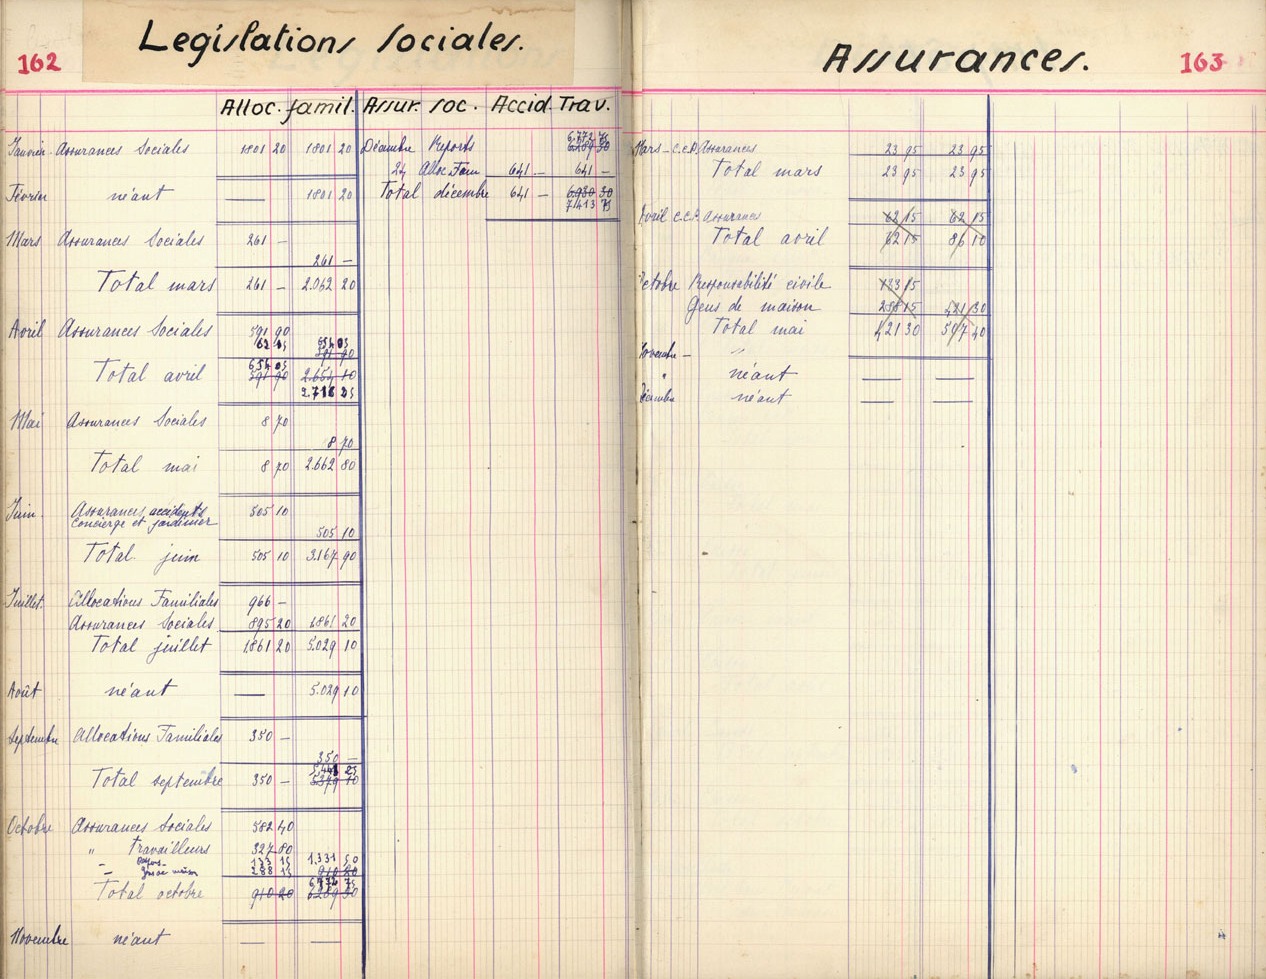 162
Législations sociales.
Alloc. famil. Assur. soc. Accid. Trav.
Janvier. Assurances Sociales 1801 20 1801 20
Février néant — 1801 20
Mars Assurances Sociales 261 —
261 —
Total mars 261 — 2.062 20
Avril Assurances Sociales 591 90
62 15 654 05
591 90
654 05
Total avril 591 90 2.654 10
2.716 25
Mai Assurances Sociales 8 70
8 70
Total mai 8 70 2.662 80
Juin Assurances accidents 505 10
Concierge et jardinier
505 10
Total juin 505 10 3.167 90
Juillet. Allocations Familiales 966 —
Assurances Sociales 895 20 1861 20
Total juillet 1.861 20 5.029 10
Août néant — 5.029 10
Septembre Allocations Familiales 350 —
350 —
Total septembre 350 — 5.379 10
Octobre Assurances Sociales 582 40
" Travailleurs 327 80
133 15 1.331 50
288 15 910 20
Total octobre 910 20 6.289 30
Novembre néant — —
Décembre Reports 6.772 75
24 Alloc. Fam 641 — 641 —
Total décembre 641 — 6.930 30
7413 75
Assurances. 163
Mars - c.c.P. Assurances 23 95 23 95
Total mars 23 95 23 95
Avril c.c.P. Assurances 62 15 62 15
Total avril 62 15 86 10
Octobre Responsabilité civile 133 15
Gens de maison 288 15 421 30
Total mai 421 30 507 40
Novembre - "
" néant — —
Décembre néant — —